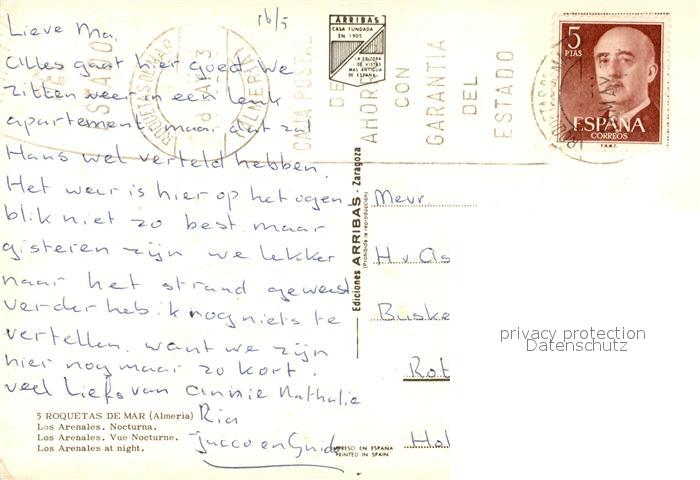 16/5
Lieve Ma,
Alles gaat hier goed. We
zitten weer in een leuk
apartement maar dat zal
Hans wel verteld hebben.
Het weer is hier op het ogen-
blik niet zo best maar
gisteren zijn we lekker
naar het strand geweest
verder heb ik nog niets te
vertellen. want we zijn
hier nog maar zo kort.
veel liefs van Annie Nathalie
Ria
Jacco en Guido
5 ROQUETAS DE MAR (Almeria)
Los Arenales. Nocturna.
Los Arenales. Vue Nocturne.
Los Arenales at night.
ARRIBAS
CASA FUNDADA
EN 1905
LA EDITORA
DE VISTAS
MAS ANTIGUA
DE ESPAÑA
ROQUETAS DE MAR
(ALMERIA)
CAJA POSTAL
DE
AHORRO
CON
GARANTIA
DEL
ESTADO
5
PTAS
ESPAÑA
CORREOS
F.N.M.T.
Ediciones ARRIBAS - Zaragoza
(Prohibida la reproducción)
Mevr
H v Os
Buske
Rot
Hol
IMPRESO EN ESPAÑA
PRINTED IN SPAIN
privacy protection
Datenschutz